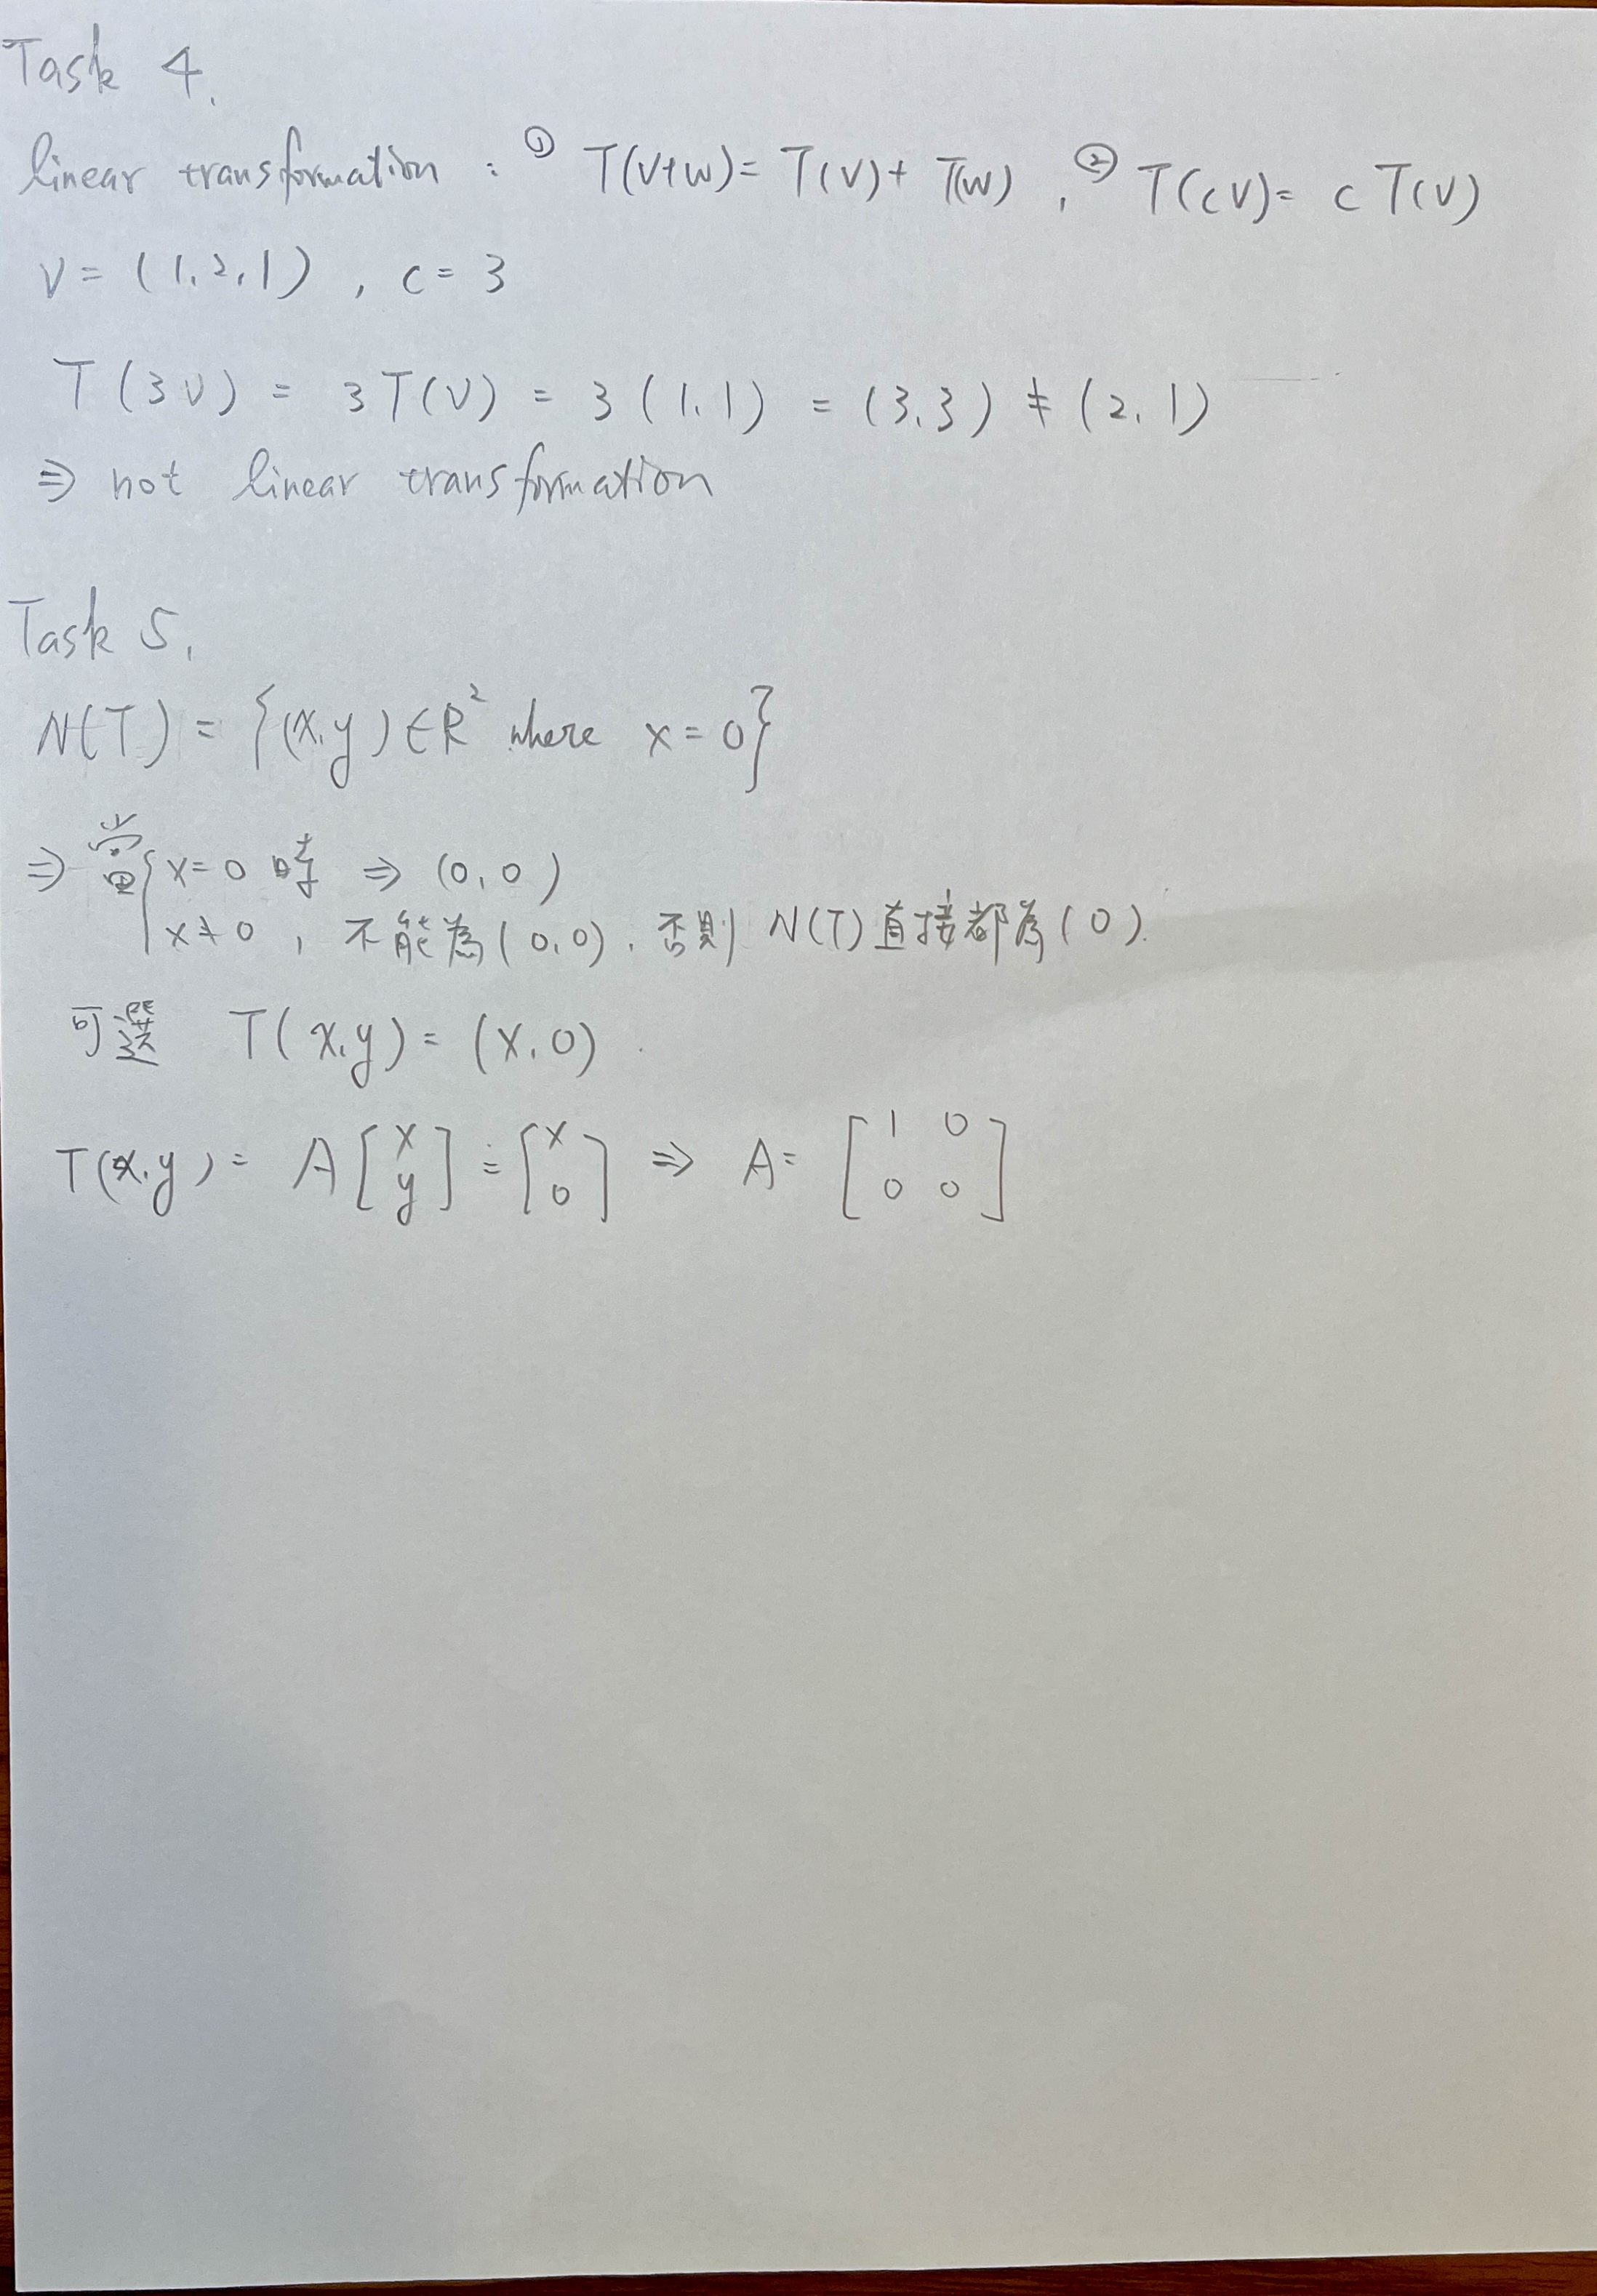 Task 4.
linear transformation : ① T(v+w)= T(v)+ T(w) , ② T(cv)= c T(v)
v = (1,2,1) , c = 3
T(3v) = 3T(v) = 3(1,1) = (3,3) ≠ (2,1)
⇒ not linear transformation
Task 5.
N(T) = {(x,y) ∈ R² where x = 0}
⇒ 當 { x=0 時 ⇒ (0,0)
x≠0 , 不能為(0,0), 否則 N(T)直接都為(0).
可選 T(x,y) = (x,0)
T(x,y) = A [x y] = [x 0] ⇒ A = [1 0 0 0]